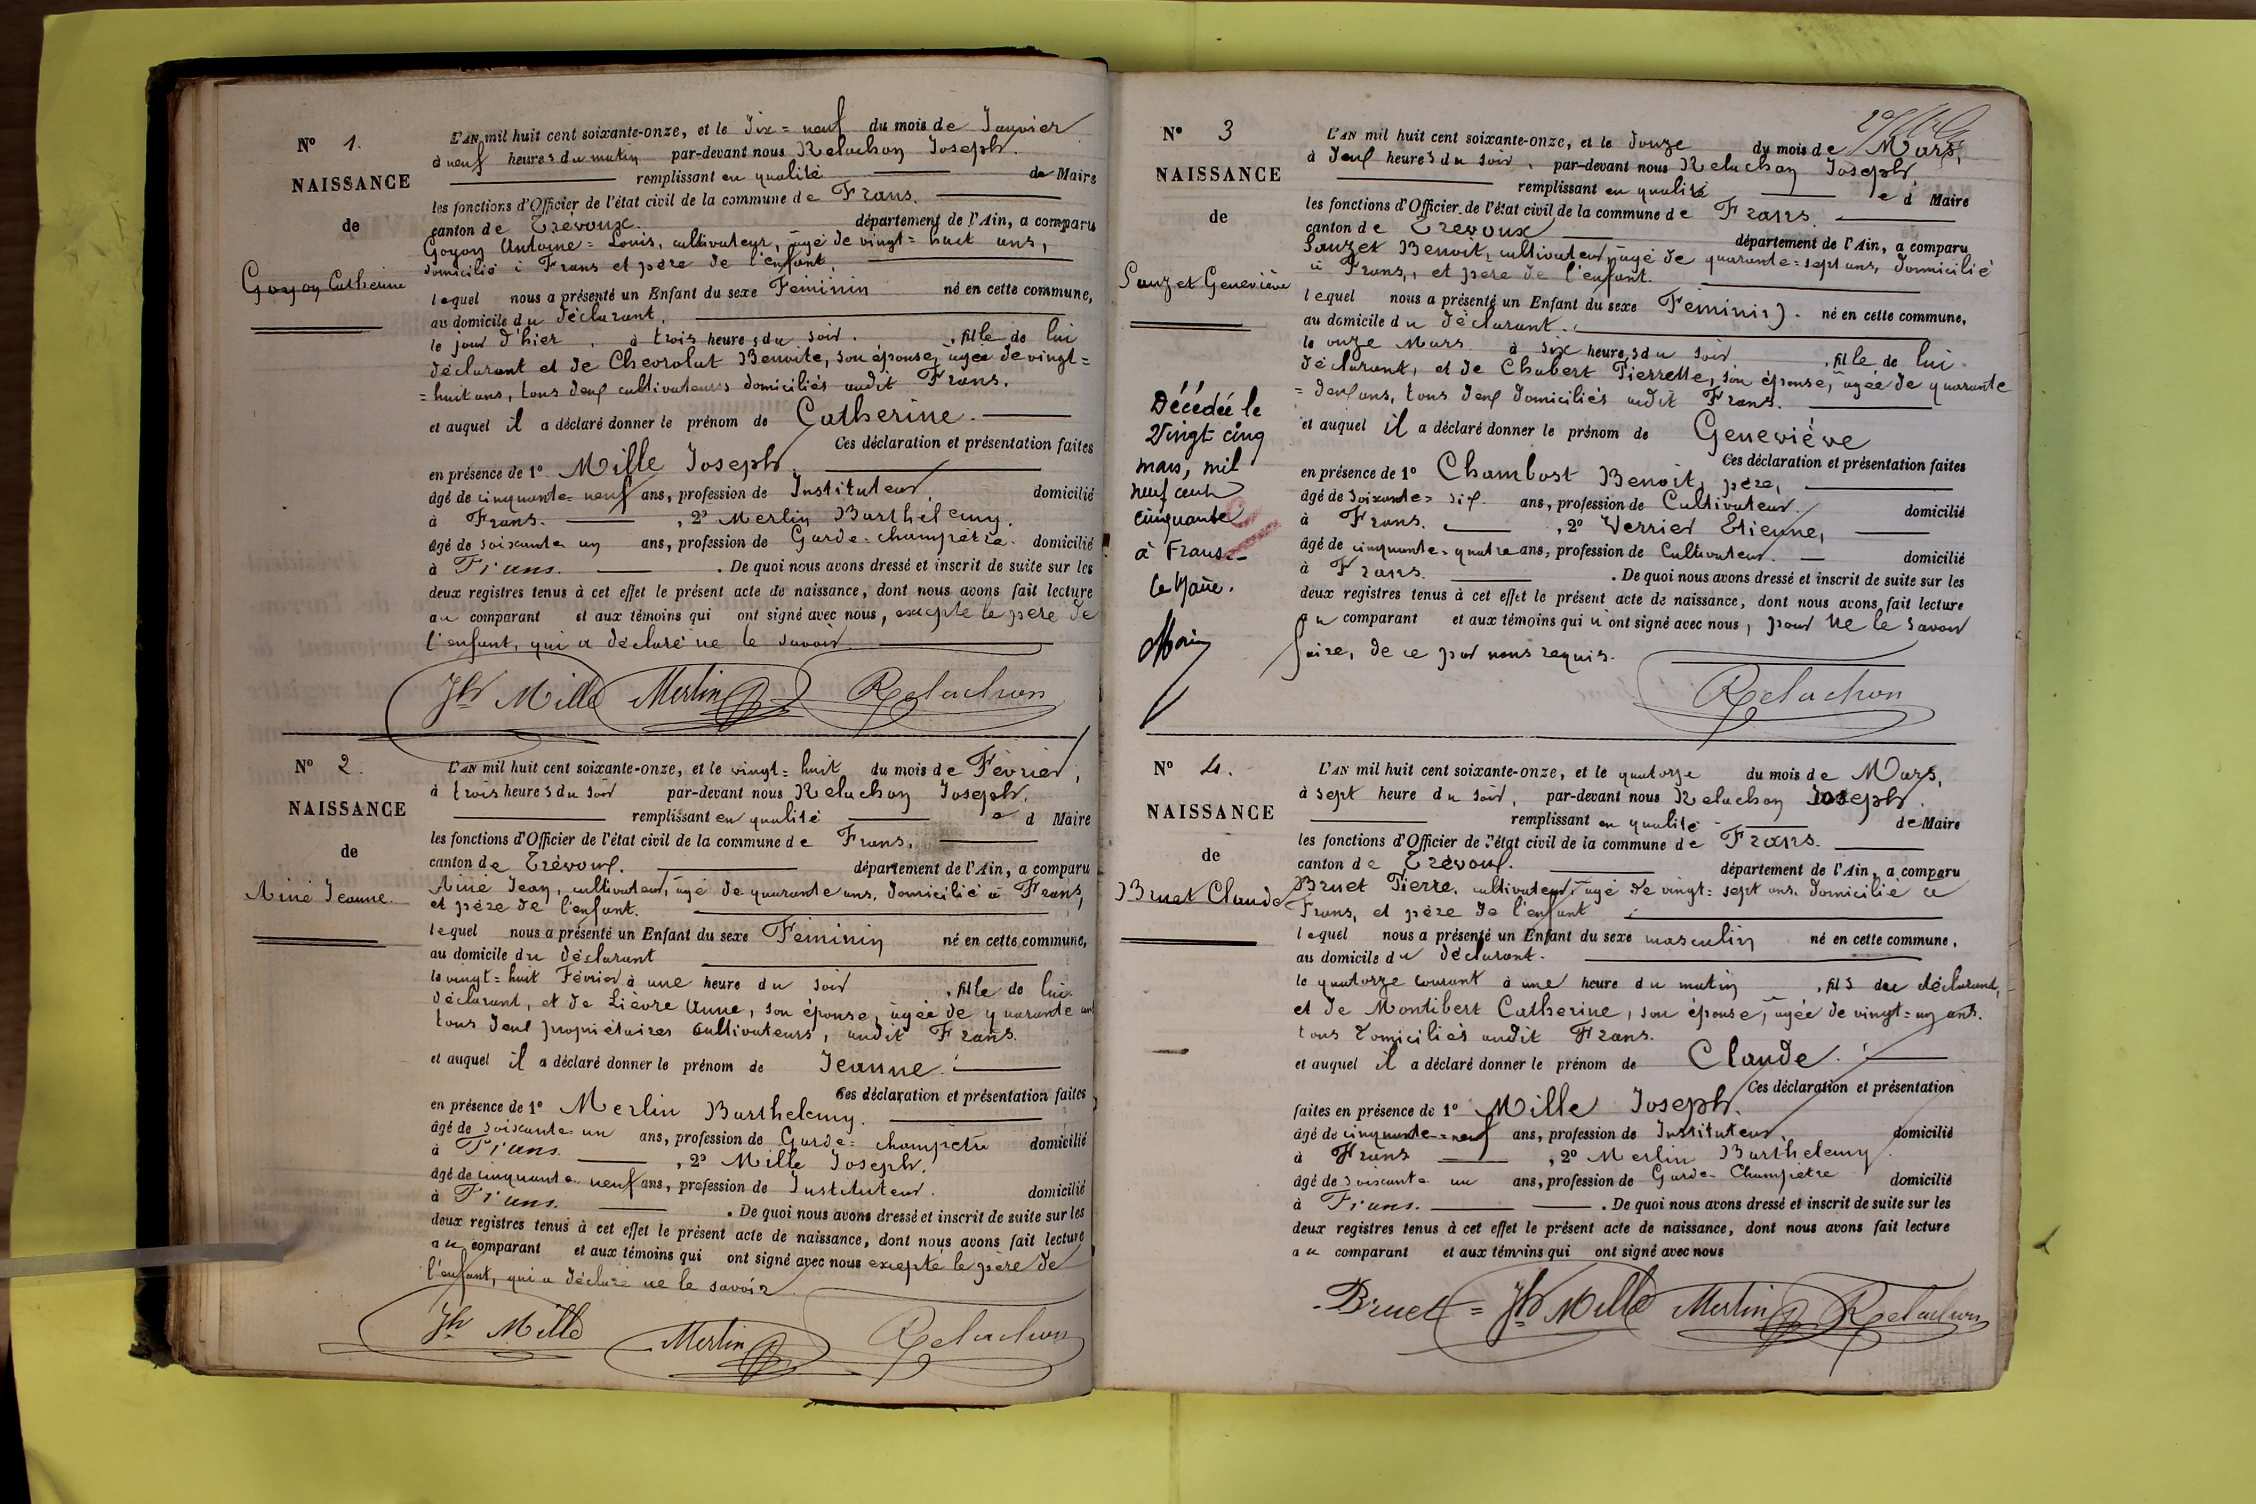 N° 1.
NAISSANCE
de
Goyon Catherine
L'AN mil huit cent soixante-onze, et le dix=neuf du mois de Janvier
à neuf heures du matin par-devant nous Relachon Joseph.
remplissant en qualité de Maire
les fonctions d'Officier de l'état civil de la commune de Frans.
canton de Trévoux. département de l'Ain, a comparu
Goyon Antoine=Louis, cultivateur, âgé de vingt=huit ans,
domicilié à Frans et père de l'enfant,
lequel nous a présenté un Enfant du sexe Feminin né en cette commune,
au domicile du déclarant,
le jour d'hier, à trois heures du soir. , fille de lui
déclarant et de Chevrolat Benoite, son épouse, agée de vingt=
=huit ans, tous deux cultivateurs domiciliés audit Frans.
et auquel il a déclaré donner le prénom de Catherine.
Ces déclaration et présentation faites
en présence de 1° Mille Joseph,
âgé de cinquante=neuf ans, profession de Instituteur, domicilié
à Frans. , 2° Merlin Barthelemy,
âgé de soixante un ans, profession de Garde-champêtre. domicilié
à Frans. . De quoi nous avons dressé et inscrit de suite sur les
deux registres tenus à cet effet le présent acte de naissance, dont nous avons fait lecture
au comparant et aux témoins qui ont signé avec nous, excepté le père de
l'enfant, qui a déclaré ne le savoir.
Jh Mille Merlin B Relachon
N° 2.
NAISSANCE
de
Miné Jeanne.
L'AN mil huit cent soixante-onze, et le vingt=huit du mois de Février,
à trois heures du soir par-devant nous Relachon Joseph,
remplissant en qualité de Maire
les fonctions d'Officier de l'état civil de la commune de Frans,
canton de Trévoux. département de l'Ain, a comparu
Miné Jean, cultivateur, âgé de quarante ans, domicilié à Frans,
et père de l'enfant.
lequel nous a présenté un Enfant du sexe Féminin né en cette commune,
au domicile du déclarant
le vingt=huit Février à une heure du soir , fille de lui
déclarant, et de Lièvre Anne, son épouse, âgée de quarante ans
tous deux propriétaires cultivateurs, audit Frans.
et auquel il a déclaré donner le prénom de Jeanne.
Ces déclaration et présentation faites
en présence de 1° Merlin Barthelemy.
âgé de soixante un ans, profession de Garde=champêtre domicilié
à Frans. , 2° Mille Joseph,
âgé de cinquante neuf ans, profession de Instituteur. domicilié
à Frans. . De quoi nous avons dressé et inscrit de suite sur les
deux registres tenus à cet effet le présent acte de naissance, dont nous avons fait lecture
au comparant et aux témoins qui ont signé avec nous excepté le père de
l'enfant, qui a déclaré ne le savoir
Jh Mille Merlin B Relachon
N° 3
NAISSANCE
de
Sauzet Geneviève
Décédée le
Vingt cinq
mars, mil
neuf cent
cinquante
à Frans
Le Maire.
L'AN mil huit cent soixante-onze, et le douze du mois de Mars,
à deux heures du soir, par-devant nous Relachon Joseph
remplissant en qualité de Maire
les fonctions d'Officier de l'état civil de la commune de Frans
canton de Trévoux département de l'Ain, a comparu
Sauzet Benoit, cultivateur, âgé de quarante=sept ans, domicilié
à Frans, et père de l'enfant.
lequel nous a présenté un Enfant du sexe Féminin. né en cette commune,
au domicile du déclarant.
le onze Mars à six heures du soir , fille de lui
déclarant, et de Chabert Pierrette, son épouse, âgée de quarante
=deux ans, tous deux domiciliés audit Frans.
et auquel il a déclaré donner le prénom de Geneviève
Ces déclaration et présentation faites
en présence de 1° Chambost Benoit, père,
âgé de soixante=six ans, profession de Cultivateur. domicilié
à Frans. , 2° Verrier Etienne,
âgé de cinquante-quatre ans, profession de Cultivateur. domicilié
à Frans. . De quoi nous avons dressé et inscrit de suite sur les
deux registres tenus à cet effet le présent acte de naissance, dont nous avons fait lecture
au comparant et aux témoins qui n'ont signé avec nous, pour ne le savoir
faire, de ce par nous requis.
Relachon
N° 4.
NAISSANCE
de
Bruet Claude
L'AN mil huit cent soixante-onze, et le quatorze du mois de Mars,
à sept heure du soir, par-devant nous Relachon Joseph.
remplissant en qualité de Maire
les fonctions d'Officier de l'état civil de la commune de Frans.
canton de Trévoux. département de l'Ain, a comparu
Bruet Pierre, cultivateur, âgé de vingt=sept ans, domicilié à
Frans, et père de l'enfant
lequel nous a présenté un Enfant du sexe masculin né en cette commune,
au domicile du déclarant.
le quatorze courant à une heure du matin , fils du déclarant,
et de Montibert Catherine, son épouse, âgée de vingt=un ans.
tous domiciliés audit Frans.
et auquel il a déclaré donner le prénom de Claude.
Ces déclaration et présentation
faites en présence de 1° Mille Joseph.
âgé de cinquante=neuf ans, profession de Instituteur, domicilié
à Frans , 2° Merlin Barthelemy
âgé de soixante un ans, profession de Garde-Champêtre domicilié
à Frans. . De quoi nous avons dressé et inscrit de suite sur les
deux registres tenus à cet effet le présent acte de naissance, dont nous avons fait lecture
au comparant et aux témoins qui ont signé avec nous
Bruet = Jh Mille Merlin B Relachon